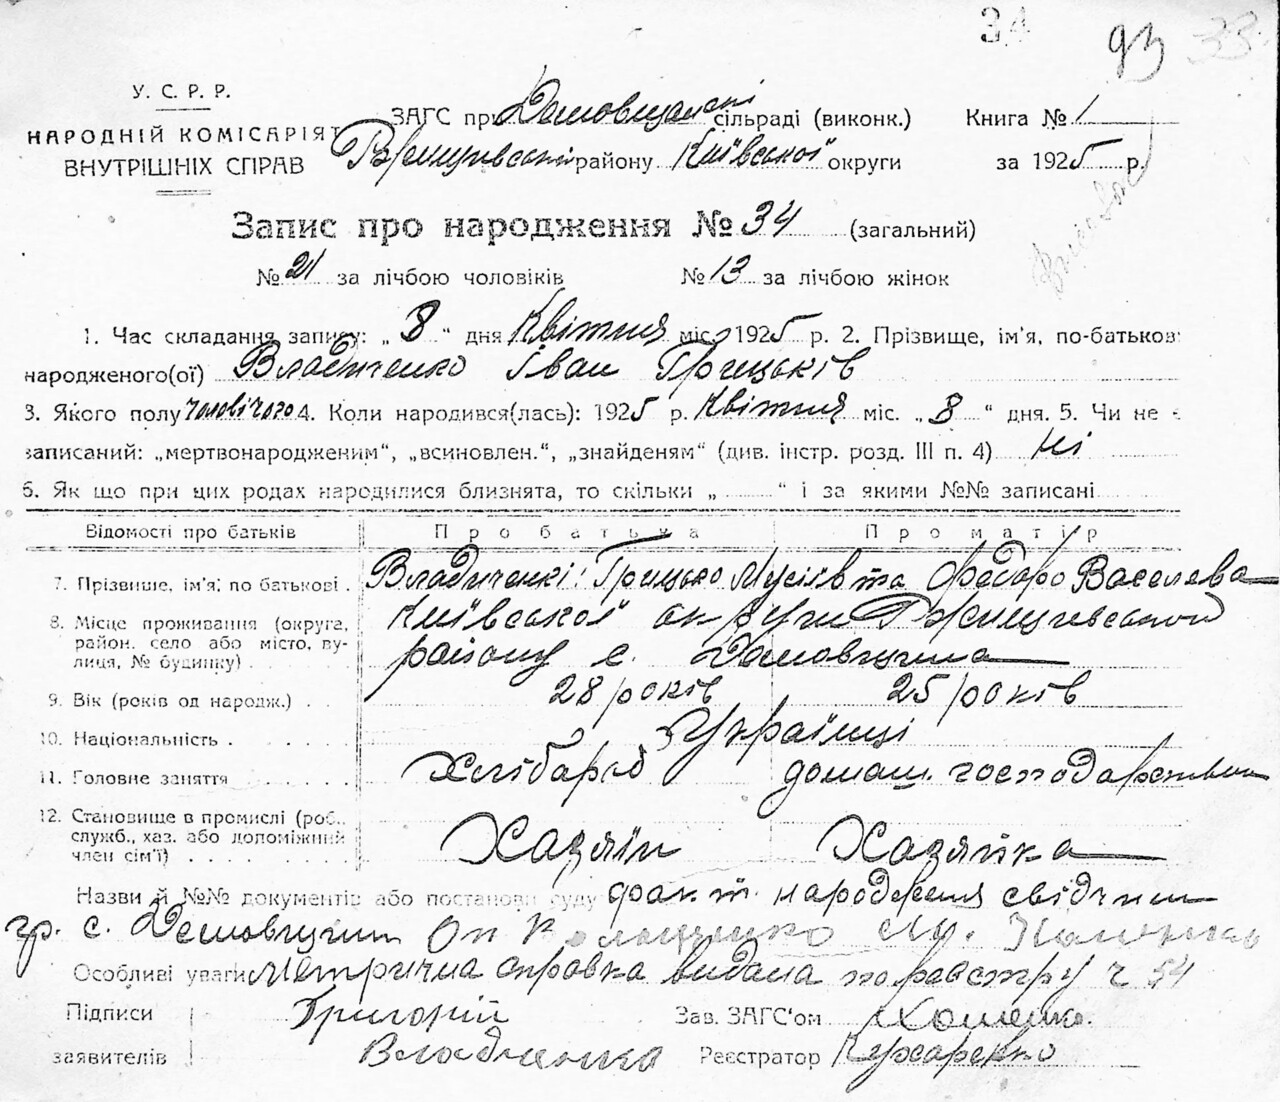 34 93 33
У. С. Р. Р.
НАРОДНІЙ КОМІСАРІЯТ
ВНУТРІШНІХ СПРАВ
ЗАГС при сільраді (виконк.) Книга № 1
Ржищівськ району Київської округи за 1925 р.
Запис про народження № 34 (загальний)
№ 21 за лічбою чоловіків № 13 за лічбою жінок
1. Час складання запису: „ 8 “ дня Квітня міс. 1925 р. 2. Прізвище, ім'я, по-батькові
народженого(ої) Владиченко Іван Грицьків
3. Якого полу чоловічого 4. Коли народився(лась): 1925 р. Квітня міс. „ 8 “ дня. 5. Чи не є
записаний: „мертвонародженим“, „всиновлен.“, „знайденям“ (див. інстр. розд. III п. 4) Ні
6. Як що при цих родах народилися близнята, то скільки „ “ і за якими №№ записані
Відомості про батьків Про батька Про матір
7. Прізвище, ім'я, по батькові . Владиченкі: Грицько Мусіїв та Федора Василева
8. Місце проживання (округа, район, село або місто, вулиця, № будинку) . Київської округи Ржищівського
району с.
9. Вік (років од народж.) . . 28 років 25 років
10. Національність . Українці
11. Головне заняття Хлібороб домаш. господарство
12. Становище в промислі (роб., служб., хаз. або допоміжний член сім'ї) Хазяїн Хазяйка
Назви й №№ документів або постанови суду факт народженя свідчили
гр. с.
Особливі уваги Метрична справка видана по реєстру ч 54
Підписи Григорій Зав. ЗАГС'ом
заявителів Владиченко Реєстратор Кухаренко